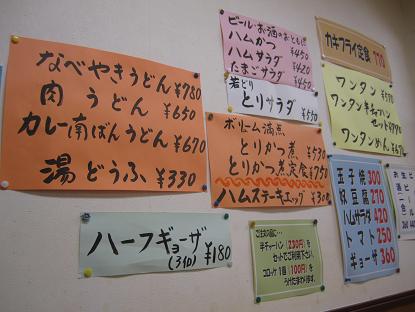 なべやきうどん ¥780
肉うどん ¥650
カレー南ばんうどん ¥670
湯どうふ ¥330
ハーフギョーザ
(3個) ¥180
ビール・お酒のおともに!!
ハムかつ ¥450
ハムサラダ ¥420
たまごサラダ ¥420
若どり
とりサラダ ¥550
ボリューム満点
とりかつ煮 ¥530
とりかつ煮定食 ¥750
ハムステーキエッグ ¥300
ご注文の際に…
半チャーハン(230円)を
セットでご利用下さい。
コロッケ1個(100円)を
うけたまわります。
カキフライ定食 770
ワンタン
ワンタン半チャーハン
セット
ワンタンめん
玉子焼 300
奴豆腐 270
ハムサラダ 420
トマト 250
ギョーザ 360